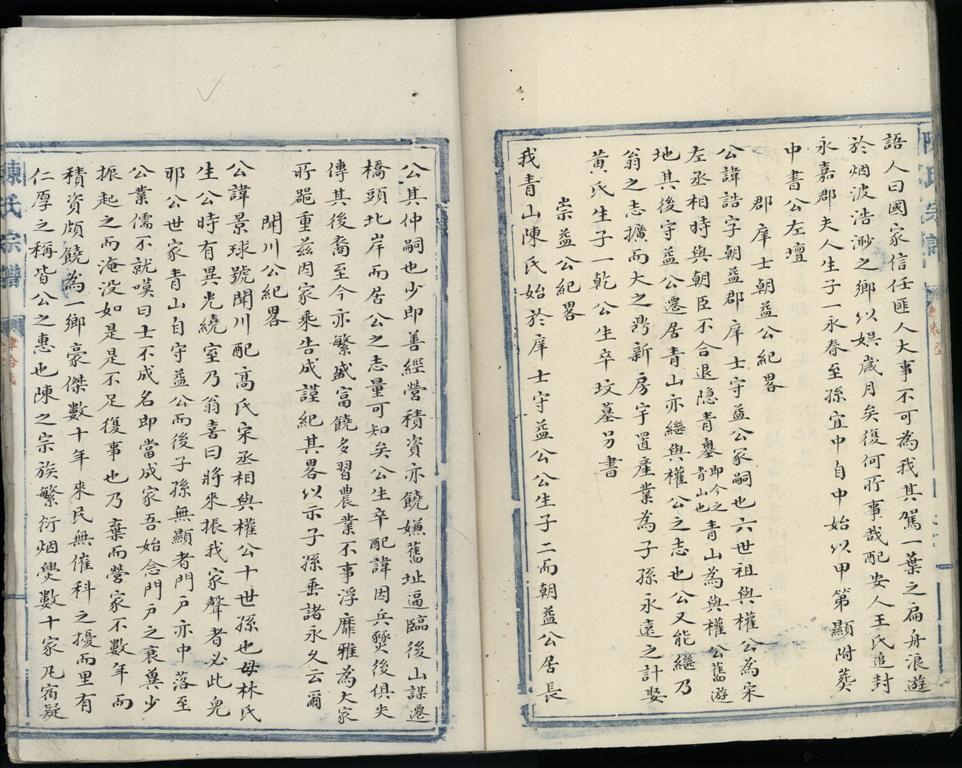 陳氏宗譜
語人曰國家信任匪人大事不可為我其駕一葉之扁舟浪遊
於烟波浩渺之鄉以娯歲月矣復何所事哉配安人王氏追封
永嘉郡夫人生子一永春至孫宜中自中始以甲第顯附葬
中書公左壇
郡庠士朝益公紀畧
公諱誥字朝益郡庠士守益公冢嗣也六世祖與權公為宋
左丞相時與朝臣不合退隐青墺即今之青山也青山為與權公舊遊
地其後守益公遷居青山亦繼與權公之志也公又能繼乃
翁之志擴而大之鼎新房宇置産業為子孫永遠之計娶
黄氏生子一乾公生卒坟墓另書
崇益公紀畧
我青山陳氏始於庠士守益公公生子二而朝益公居長
公其仲嗣也少即善經營積資亦饒嫌舊址逼臨後山謀遷
橋頭北岸而居公之志量可知矣公生卒配諱因兵燹後俱失
傳其後裔至今亦繁盛富饒多習農業不事浮靡雅為大家
所噐重兹因家乘告成謹紀其畧以示子孫垂諸永久云爾
聞川公紀畧
公諱景球號聞川配髙氏宋丞相與權公十世孫也母林氏
生公時有異光繞室乃翁喜曰將來振我家聲者必此兒
耶公世家青山自守益公而後子孫無顯者門户亦中落至
公業儒不就嘆曰士不成名即當成家吾始念門户之衰兾少
振起之而淹没如是是不足復事也乃棄而營家不數年而
積資頗饒為一鄉豪傑數十年來民無催科之擾而里有
仁厚之稱皆公之惠也陳之宗族繁衍烟爨數十家凡宿疑
陳氏宗譜